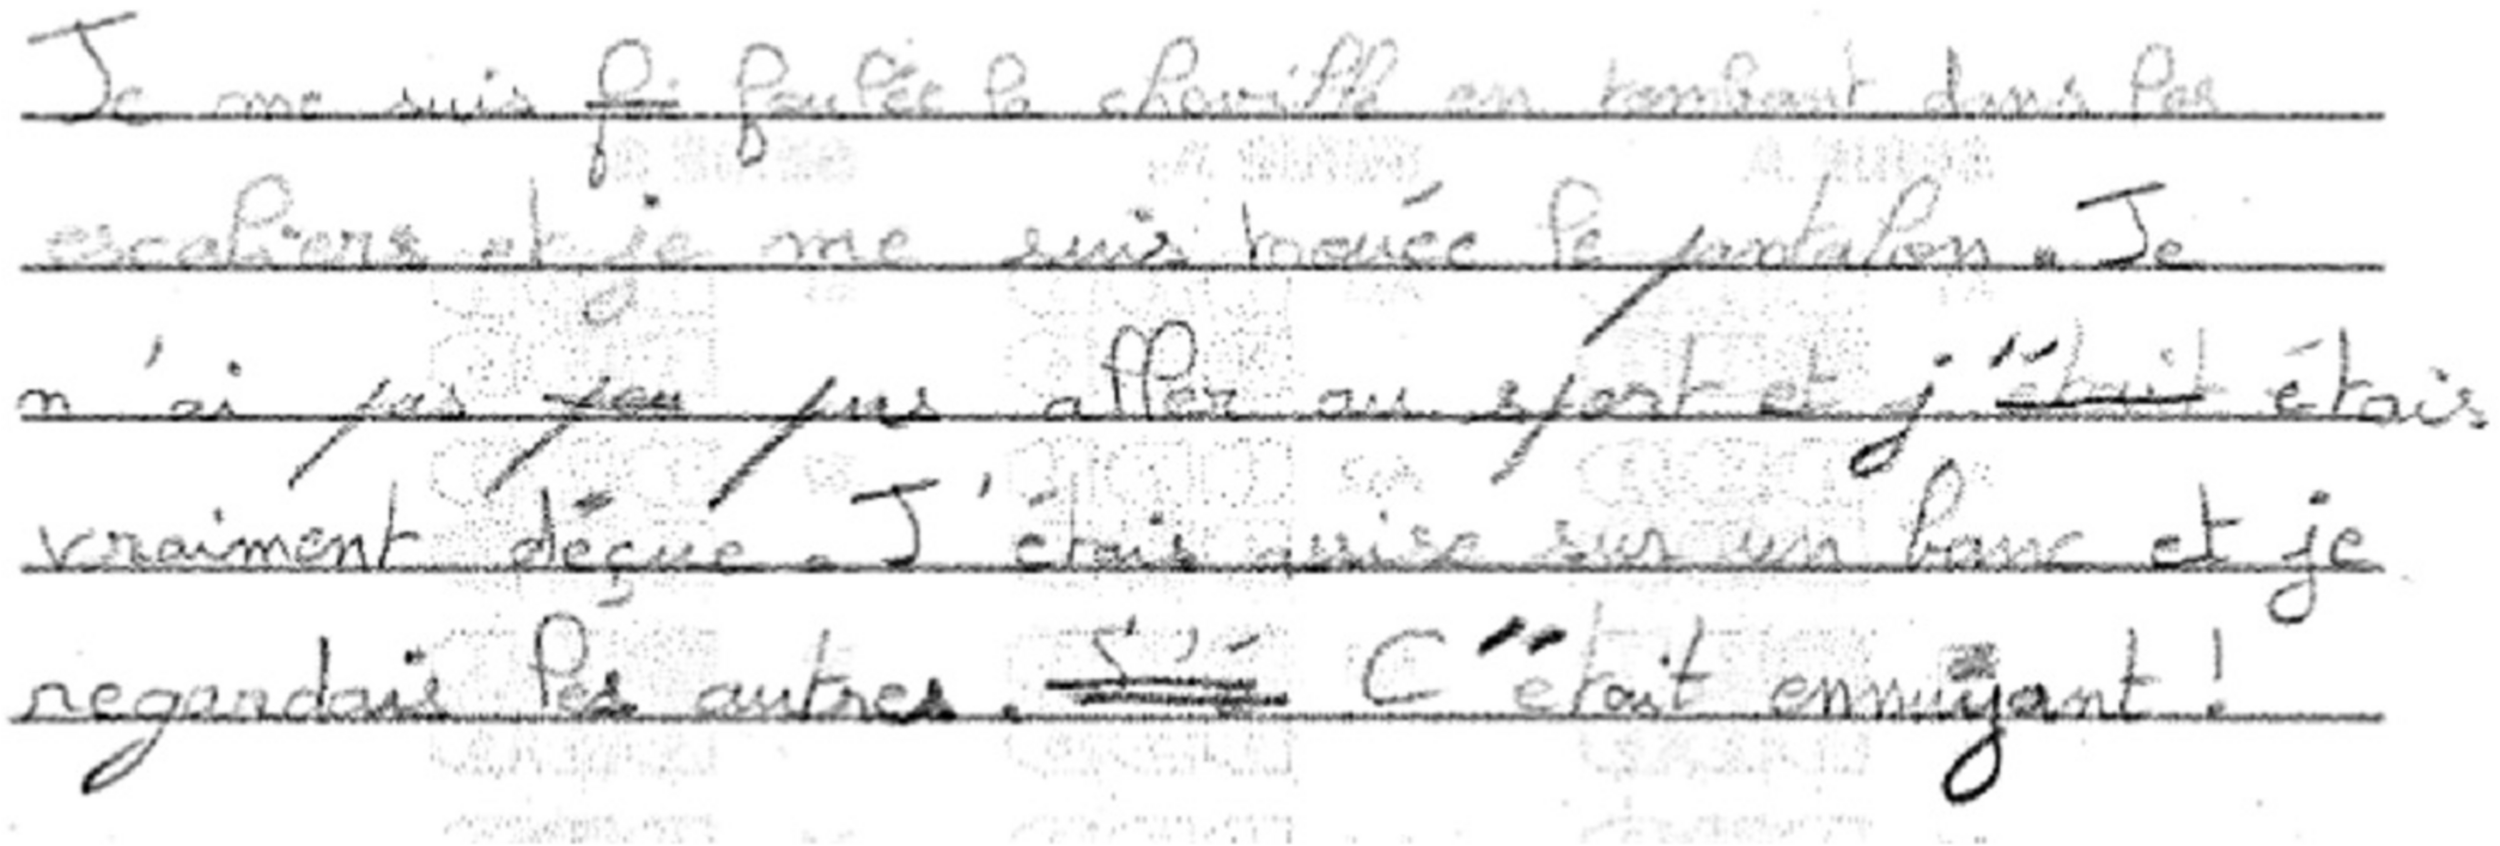 Je me suis fi foulée la cheville en tombant dans les
escaliers et je me suis trouée le pantalon. Je
n'ai pas peu pus aller au sport et j'était étais
vraiment déçue. J'étais assise sur un banc et je
regardais les autres. C'était ennuyant !